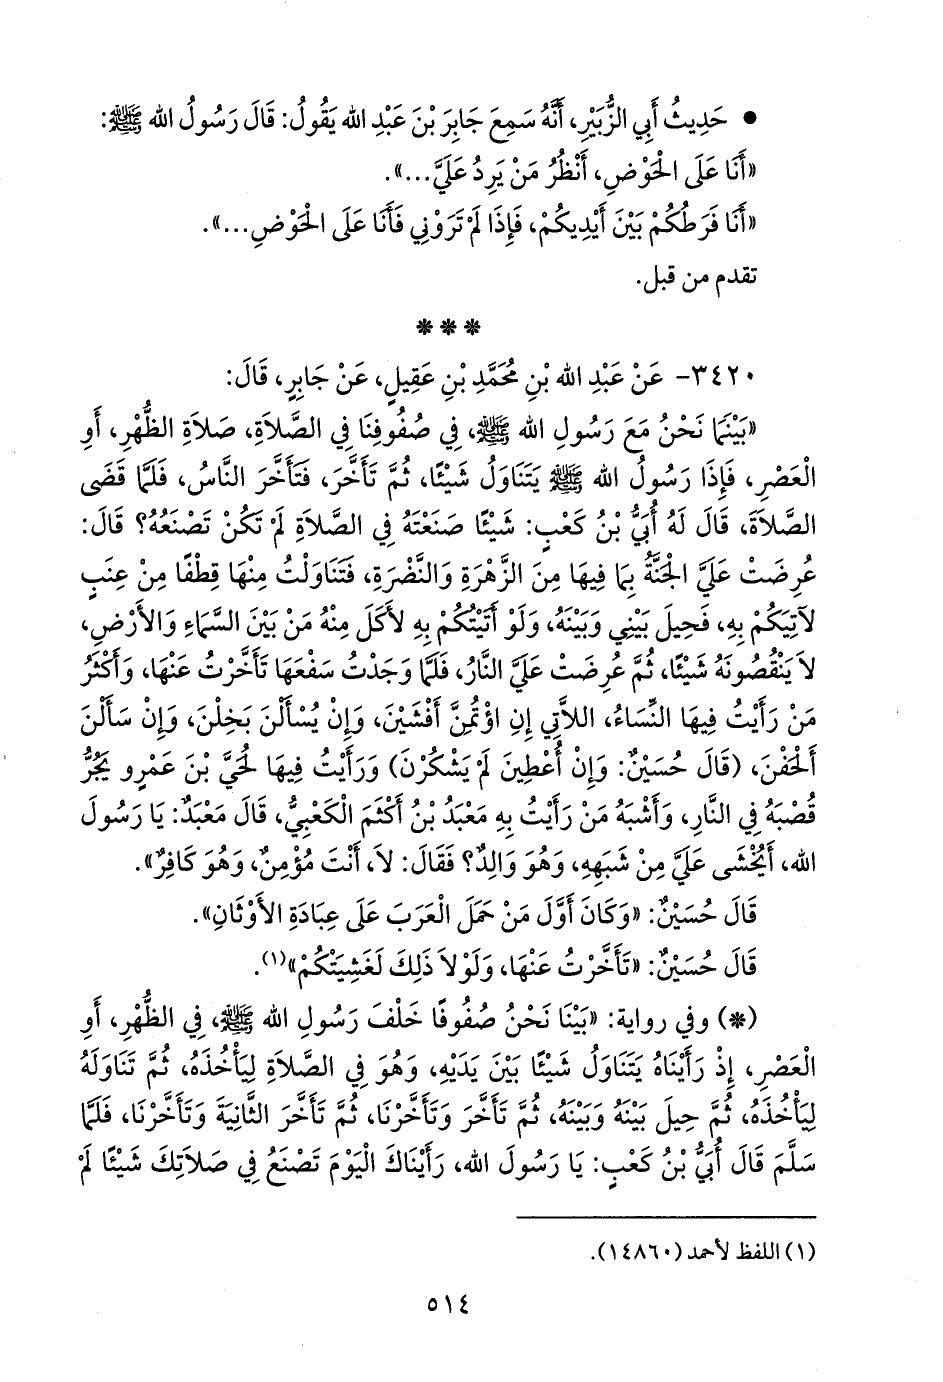 • حَدِيثُ أَبِي الزُّبَيْرِ، أَنَّهُ سَمِعَ جَابِرَ بْنَ عَبْدِ الله يَقُولُ: قَالَ رَسُولُ الله ﷺ:
«أَنَا عَلَى الْحَوْضِ، أَنْظُرُ مَنْ يَرِدُ عَلَيَّ...».
«أَنَا فَرَطُكُمْ بَيْنَ أَيْدِيكُمْ، فَإِذَا لَمْ تَرَوْنِي فَأَنَا عَلَى الْحَوْضِ...».
تقدم من قبل.
***
٣٤٢٠- عَنْ عَبْدِ الله بْنِ مُحَمَّدِ بْنِ عَقِيلٍ، عَنْ جَابِرٍ، قَالَ:
«بَيْنَمَا نَحْنُ مَعَ رَسُولِ الله ﷺ، فِي صُفُوفِنَا فِي الصَّلاَةِ، صَلاَةِ الظُّهْرِ، أَوِ
الْعَصْرِ، فَإِذَا رَسُولُ الله ﷺ يَتَنَاوَلُ شَيْئًا، ثُمَّ تَأَخَّرَ، فَتَأَخَّرَ النَّاسُ، فَلَمَّا قَضَى
الصَّلاَةَ، قَالَ لَهُ أُبَيُّ بْنُ كَعْبٍ: شَيْئًا صَنَعْتَهُ فِي الصَّلاَةِ لَمْ تَكُنْ تَصْنَعُهُ؟ قَالَ:
عُرِضَتْ عَلَيَّ الْجَنَّةُ بِمَا فِيهَا مِنَ الزَّهْرَةِ وَالنَّضْرَةِ، فَتَنَاوَلْتُ مِنْهَا قِطْفًا مِنْ عِنَبٍ
لآتِيَكُمْ بِهِ، فَحِيلَ بَيْنِي وَبَيْنَهُ، وَلَوْ أَتَيْتُكُمْ بِهِ لأَكَلَ مِنْهُ مَنْ بَيْنَ السَّمَاءِ وَالأَرْضِ،
لاَ يَنْقُصُونَهُ شَيْئًا، ثُمَّ عُرِضَتْ عَلَيَّ النَّارُ، فَلَمَّا وَجَدْتُ سَفْعَهَا تَأَخَّرْتُ عَنْهَا، وَأَكْثَرُ
مَنْ رَأَيْتُ فِيهَا النِّسَاءُ، اللاَّتِي إِنِ اؤْتُمِنَّ أَفْشَيْنَ، وَإِنْ يُسْأَلْنَ بَخِلْنَ، وَإِنْ سَأَلْنَ
أَلْحَفْنَ، (قَالَ حُسَيْنٌ: وَإِنْ أُعْطِينَ لَمْ يَشْكُرْنَ) وَرَأَيْتُ فِيهَا لُحَيَّ بْنَ عَمْرٍو يَجُرُّ
قُصْبَهُ فِي النَّارِ، وَأَشْبَهُ مَنْ رَأَيْتُ بِهِ مَعْبَدُ بْنُ أَكْثَمَ الْكَعْبِيُّ، قَالَ مَعْبَدٌ: يَا رَسُولَ
الله، أَيُخْشَى عَلَيَّ مِنْ شَبَهِهِ، وَهُوَ وَالِدٌ؟ فَقَالَ: لاَ، أَنْتَ مُؤْمِنٌ، وَهُوَ كَافِرٌ».
قَالَ حُسَيْنٌ: «وَكَانَ أَوَّلَ مَنْ حَمَلَ الْعَرَبَ عَلَى عِبَادَةِ الأَوْثَانِ».
قَالَ حُسَيْنٌ: «تَأَخَّرْتُ عَنْهَا، وَلَوْلاَ ذَلِكَ لَغَشِيَتْكُمْ»(١).
(*) وفي رواية: «بَيْنَا نَحْنُ صُفُوفًا خَلْفَ رَسُولِ الله ﷺ، فِي الظُّهْرِ، أَوِ
الْعَصْرِ، إِذْ رَأَيْنَاهُ يَتَنَاوَلُ شَيْئًا بَيْنَ يَدَيْهِ، وَهُوَ فِي الصَّلاَةِ لِيَأْخُذَهُ، ثُمَّ تَنَاوَلَهُ
لِيَأْخُذَهُ، ثُمَّ حِيلَ بَيْنَهُ وَبَيْنَهُ، ثُمَّ تَأَخَّرَ وَتَأَخَّرْنَا، ثُمَّ تَأَخَّرَ الثَّانِيَةَ وَتَأَخَّرْنَا، فَلَمَّا
سَلَّمَ قَالَ أُبَيُّ بْنُ كَعْبٍ: يَا رَسُولَ الله، رَأَيْنَاكَ الْيَوْمَ تَصْنَعُ فِي صَلاَتِكَ شَيْئًا لَمْ
(١) اللفظ لأحمد (١٤٨٦٠).
٥١٤